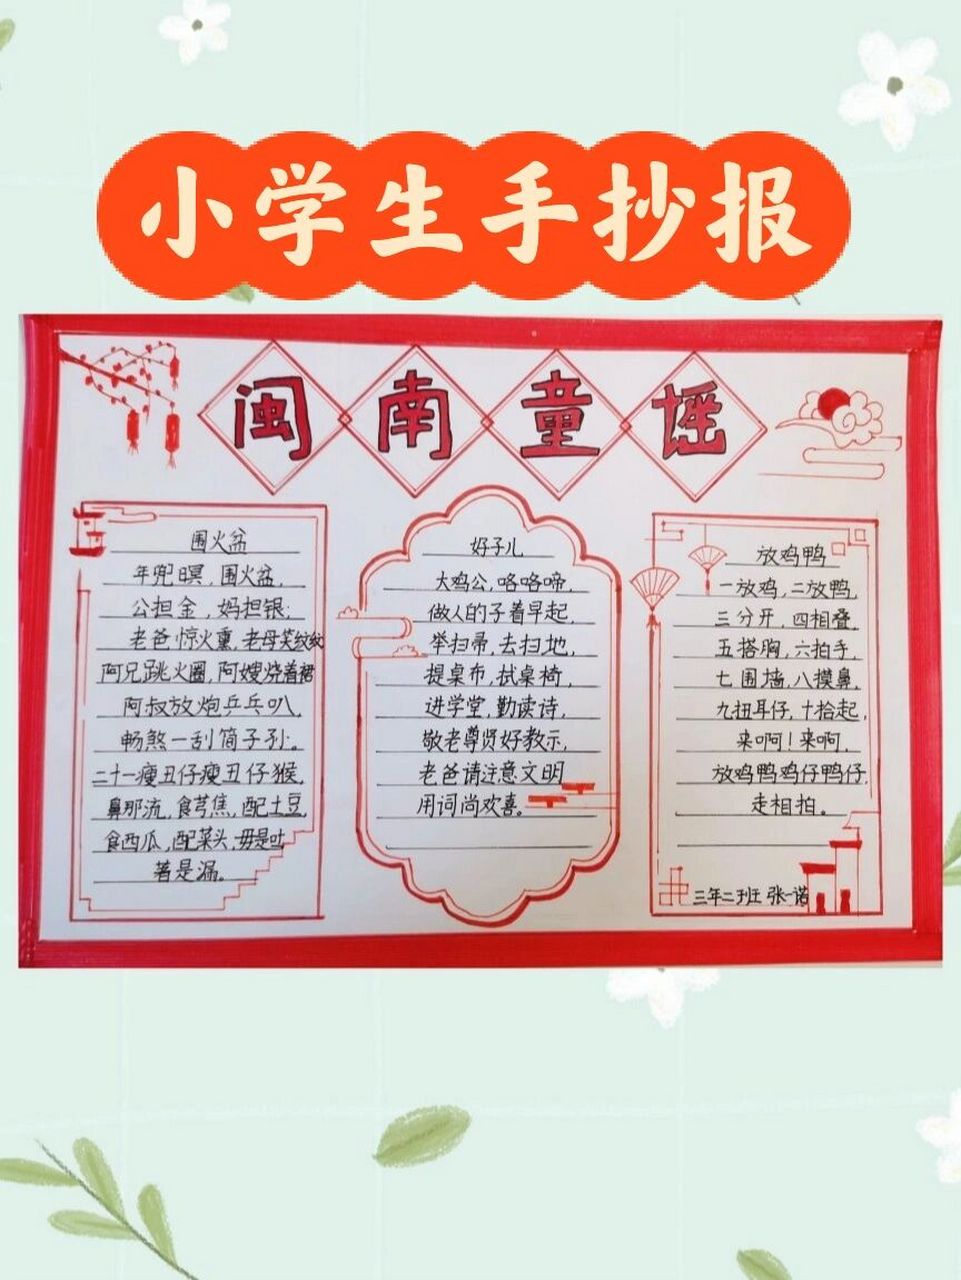 小学生手抄报
闽南童谣
围火盆
年兜暝,围火盆,
公担金,妈担银;
老爸惊火熏,老母笑纹纹
阿兄跳火圈,阿嫂烧着裙
阿叔放炮乒乓叭,
畅煞一刮简子孙。
二十一瘦丑仔瘦丑仔猴,
鼻那流,食芎焦,配土豆,
食西瓜,配菜头,毋是吐
著是漏。
好子儿
大鸡公,咯咯啼,
做人的子着早起,
举扫帚,去扫地,
提桌布,拭桌椅,
进学堂,勤读诗,
敬老尊贤好教示,
老爸请注意文明
用词尚欢喜。
放鸡鸭
一放鸡,二放鸭,
三分开,四相叠,
五搭胸,六拍手,
七围墙,八摸鼻,
九扭耳仔,十拾起,
来啊!来啊,
放鸡鸭鸡仔鸭仔,
走相拍。
三年二班 张一诺